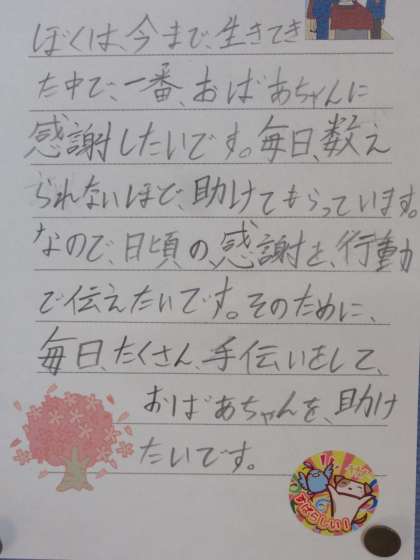 ぼくは、今まで、生きてき
た中で、一番、おばあちゃんに
感謝したいです。毎日、数え
られないほど、助けてもらっています。
なので、日頃の、感謝を、行動
で伝えたいです。そのために、
毎日、たくさん、手伝いをして、
おばあちゃんを、助け
たいです。
すばらしい!